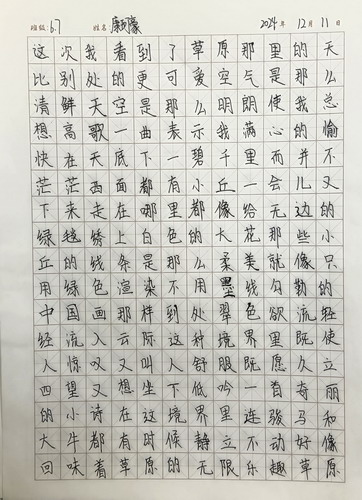 班级: 6.7 姓名: 2024年 12月 11日
这次我看到了草原那里的天
比别处的更可爱空气是那么
清鲜天空是那么明朗使我总
想高歌一曲表示我满心的愉
快在天底下一碧千里而并不
茫茫西面都有小丘一会儿又
下来走在哪里都像给无边的
绿毯绣上白色的大花那些小
丘的线条是那么柔美就像只
用绿色渲染不用墨线勾勒的
中国画那样到处翠色欲流轻
经流入云际这种境界里既使
人惊叹又叫人舒服既愿久立
四望又想坐下低吟一首奇丽
的小诗在这境界里连骏马和
大牛都有时候静立不动好像
回味着草原的无限乐趣草原